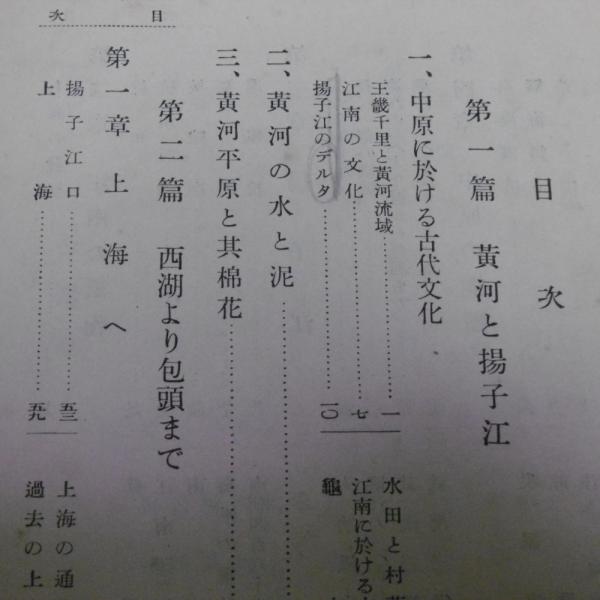 目次
目次
第一篇 黄河と揚子江
一、中原に於ける古代文化
王畿千里と黄河流域……一
江南の文化……七
揚子江のデルタ……一〇
水田と村
江南に於ける
二、黄河の水と泥……
三、黄河平原と其棉花……
第二篇 西湖より包頭まで
第一章 上海へ
揚子江口……五三
上海……五九
上海の通
過去の上